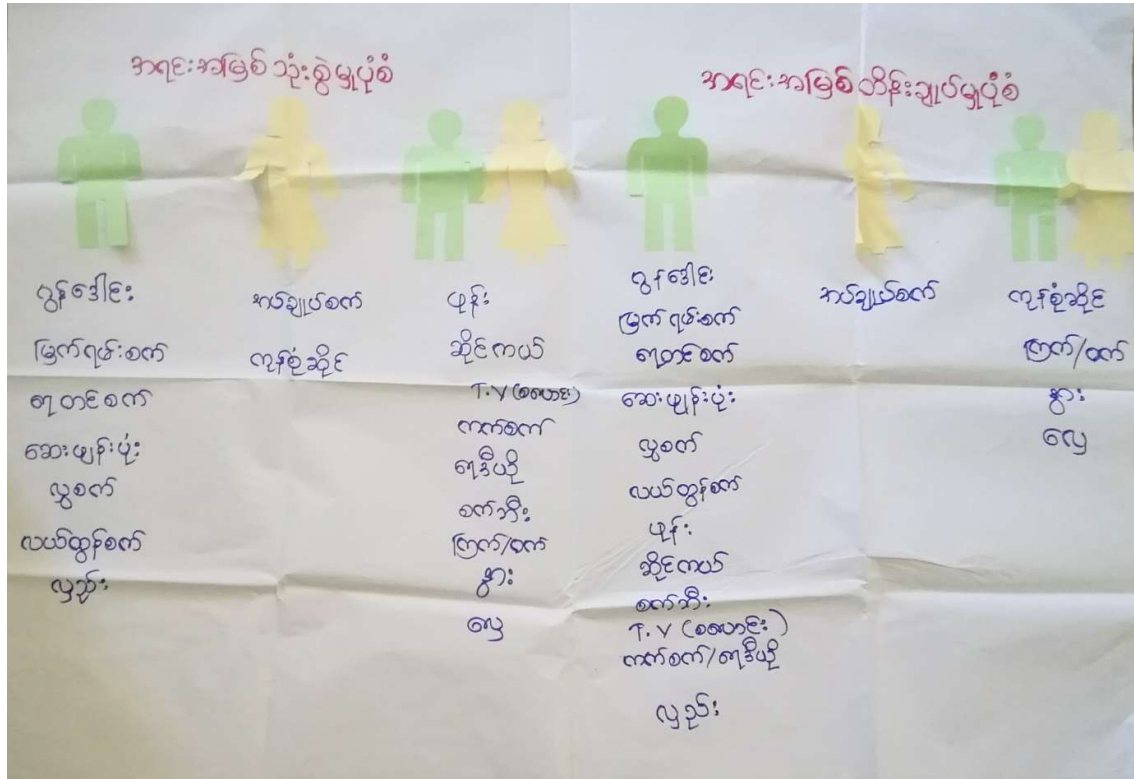 အရင်းအမြစ် သုံးစွဲမှုပုံစံ
ဂွန်ဒေါင်း
မြက်ရမ်းစက်
ရေတင်စက်
ဆေးဖျန်းပုံး
လွှစက်
လယ်ထွန်စက်
လှည်း
အပ်ချုပ်စက်
ကုန်စုံဆိုင်
ဖုန်း
ဆိုင်ကယ်
T.V (စလောင်း)
ကက်စက်
ရေဒီယို
စက်ဘီး
ကြက်/ဝက်
နွား
လှေ
အရင်းအမြစ် ထိန်းချုပ်မှုပုံစံ
ဂွန်ဒေါင်း
မြက်ရမ်းစက်
ရေတင်စက်
ဆေးဖျန်းပုံး
လွှစက်
လယ်ထွန်စက်
ဖုန်း
ဆိုင်ကယ်
စက်ဘီး
T.V (စလောင်း)
ကက်စက်/ရေဒီယို
လှည်း
အပ်ချုပ်စက်
ကုန်စုံဆိုင်
ကြက်/ဝက်
နွား
လှေ